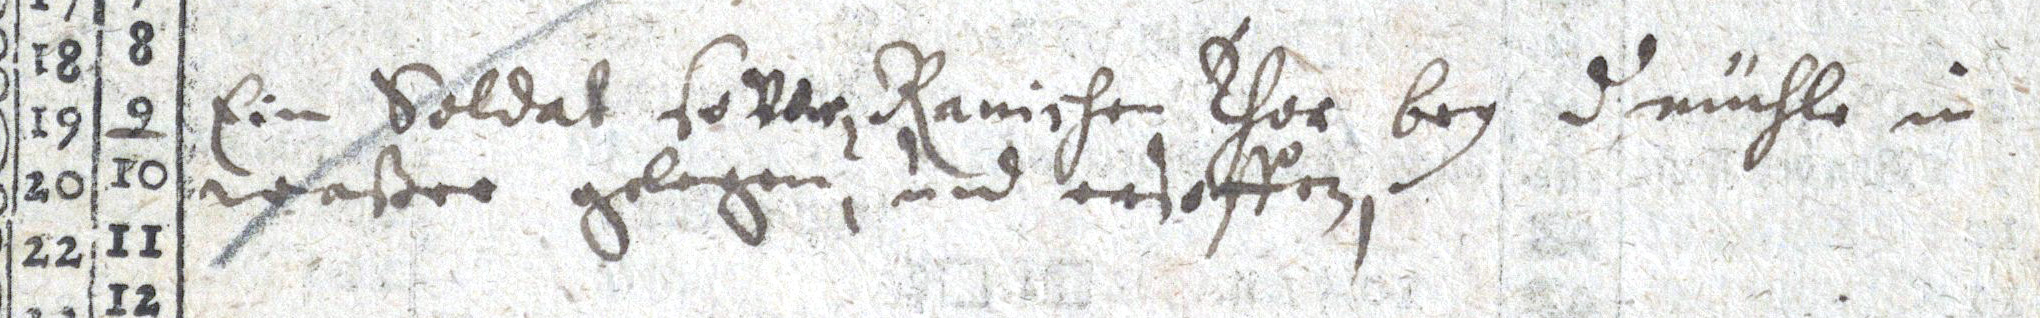 18 8
Ein Soldat so vor Ranischen Thor bey d mühle in
19 9
20 10
waßer gelegen, und ersoffen,
22 11
12